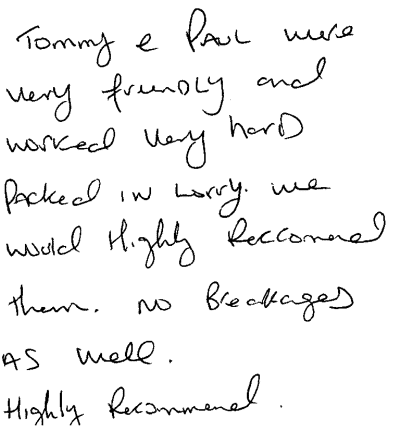 Tommy & Paul were
very friendly and
worked very hard
Packed in Lorry. we
would Highly Reccomend
them. no Breakages
AS well.
Highly Recommend.